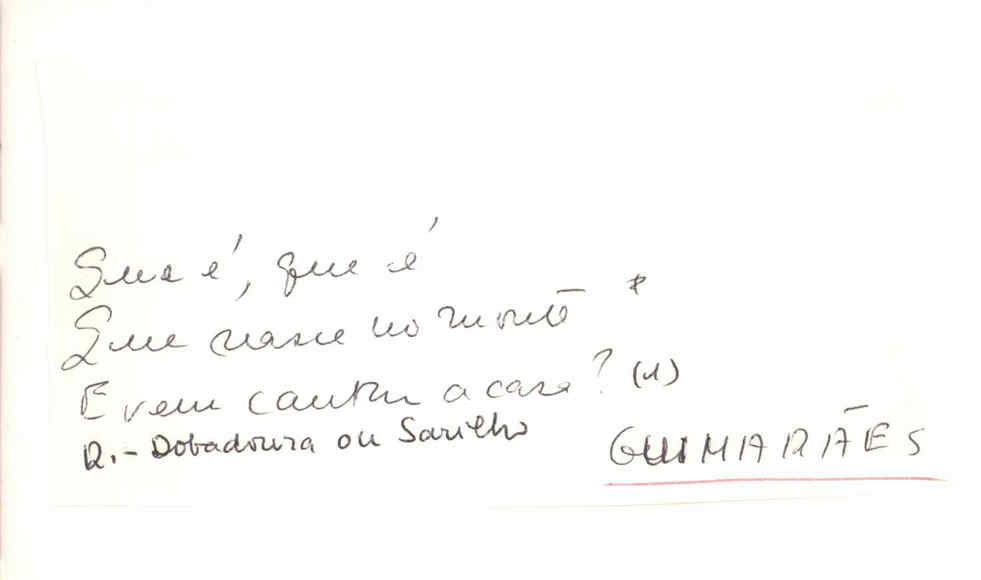 Que é, que é
Que nasce no monte *
E vem cantar a casa? (1)
R.- Dobadoura ou Sarilho
GUIMARÃES